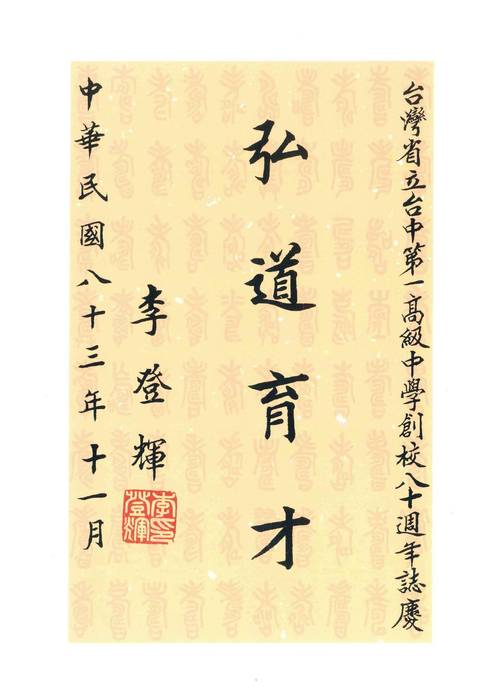 台灣省立台中第一高級中學創校八十週年誌慶
弘道育才
李登輝
李登輝印
中華民國八十三年十一月